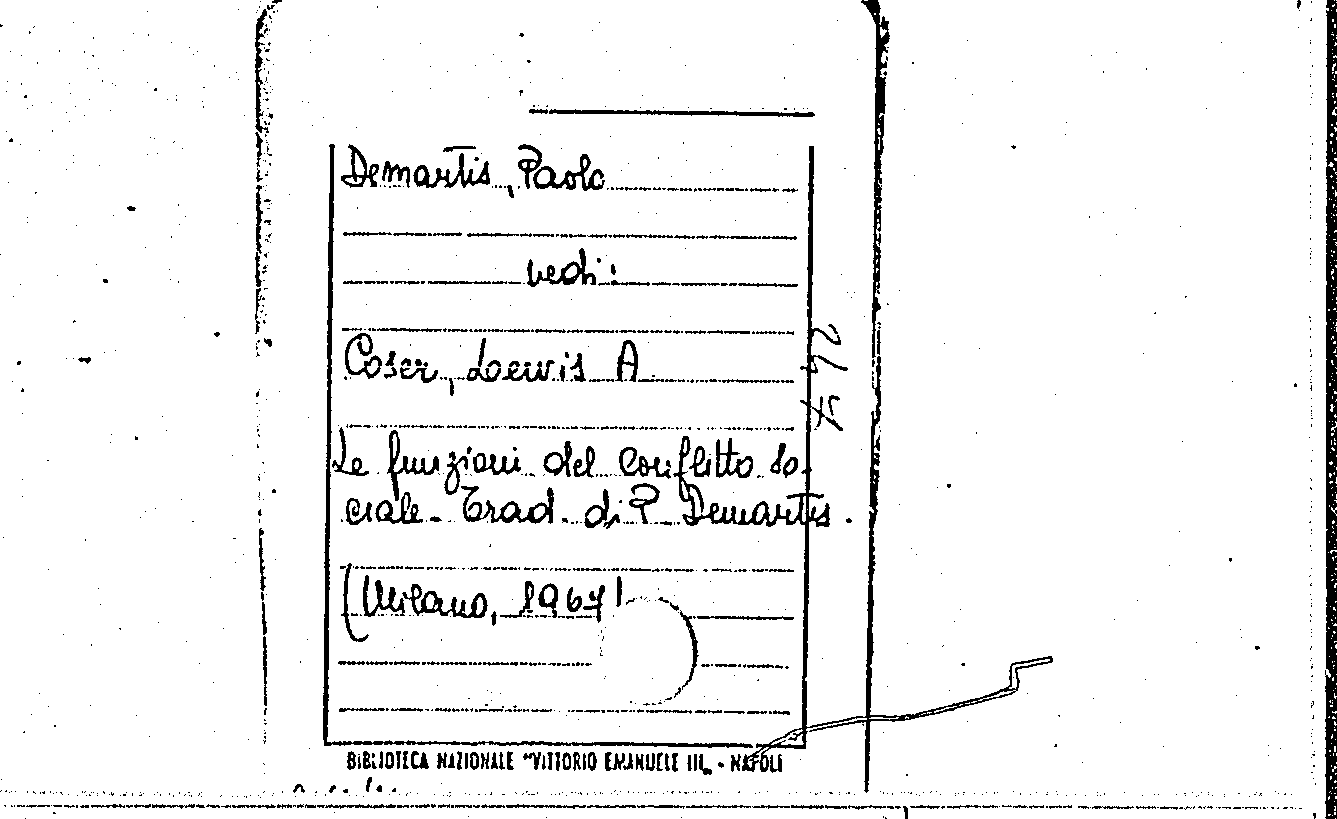 Demartis, Paolo
vedi:
Coser, Lewis A.
Le funzioni del conflitto so-
ciale. Trad. di P. Demartis.
(Milano, 1967)
BIBLIOTECA NAZIONALE "VITTORIO EMANUELE III" - NAPOLI